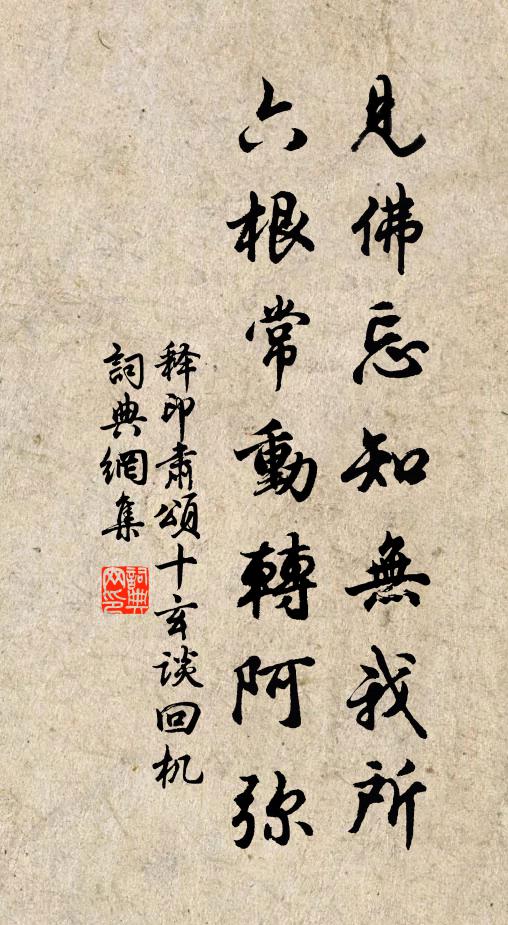 見佛忘知無我所
六根常動轉阿弥
释印肃頌十玄谈回机
詞典網集
詞典網印